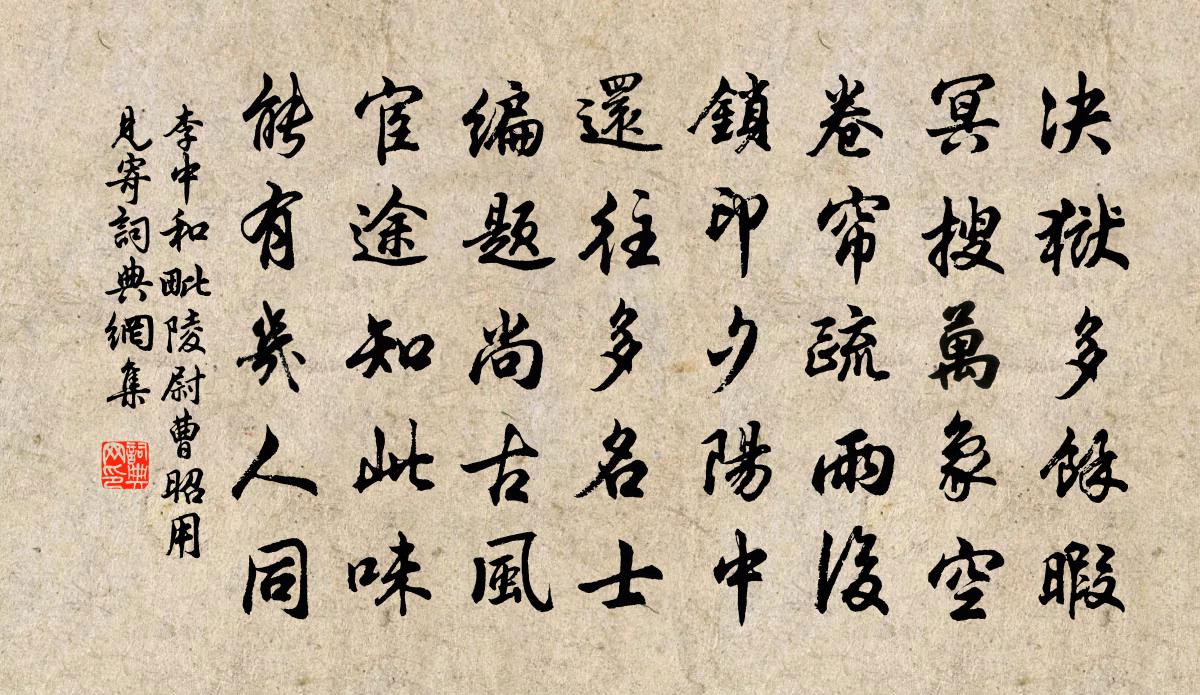 决獄多餘暇
冥搜萬象空
卷帘疏雨後
鎖印夕陽中
還往多名士
编题尚古風
宦途知此味
能有幾人同
李中和毗陵尉曹昭用
見寄詞典網集
詞典網印